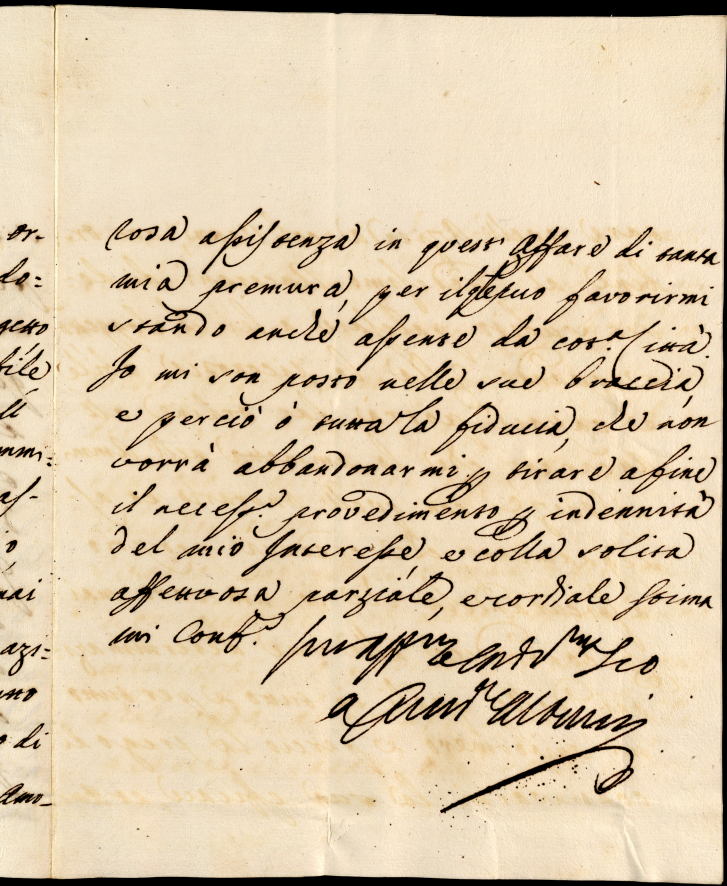 or-
do=
getto
bile
ll
mmi=
as-
io
mai
azi=
nno
o di
amo-
rosa assistenza in quest'affare di tanta
mia premura, per il favorirmi
stando anche assente da cot.ª Città.
Io mi son posto nelle sue braccia,
e perciò ò tutta la fiducia, che non
vorrà abbandonarmi, p tirare a fine
il necess.º provedimento p indennità
del mio Interesse, e colla solita
affettuosa parziale, e cordiale stima
mi Conf.º